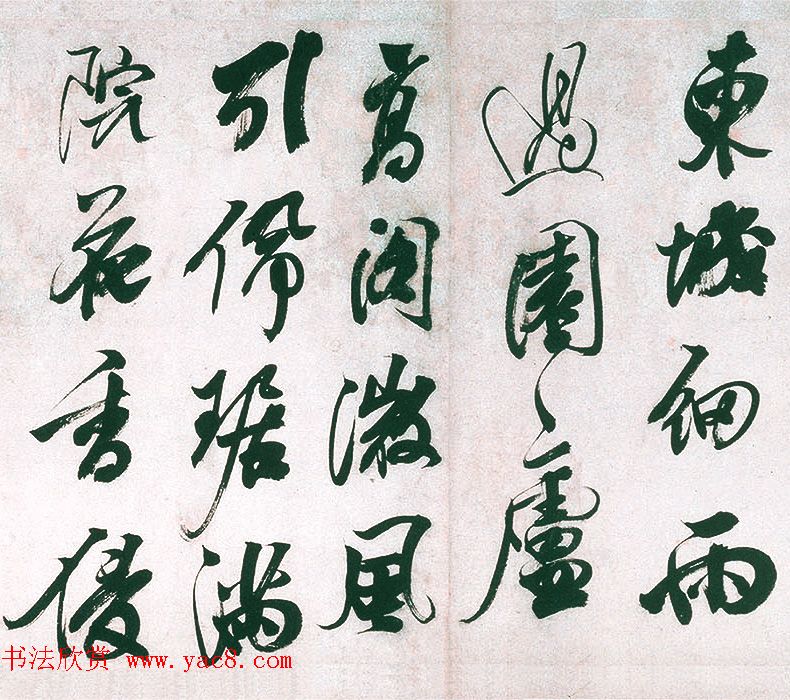 東城細雨
過園廬
高閣微風
引佩琚滿
院花香
书法欣赏 www.yac8.com